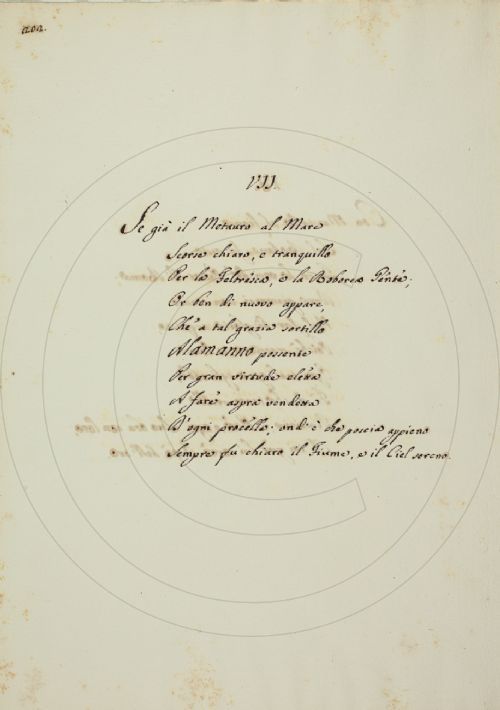 202.
VII
Se già il Metauro al Mare
Scorse chiaro, e tranquillo
Per la Feltresca, e la Roboree Gente;
Or ben di nuovo appare,
Che a tal grazia sortillo
Alamanno possente
Per gran virtude eletta
A fare aspra vendetta
D'ogni procella; ond'è che poscia appieno
Sempre fu chiaro il Fiume, e il Ciel sereno.